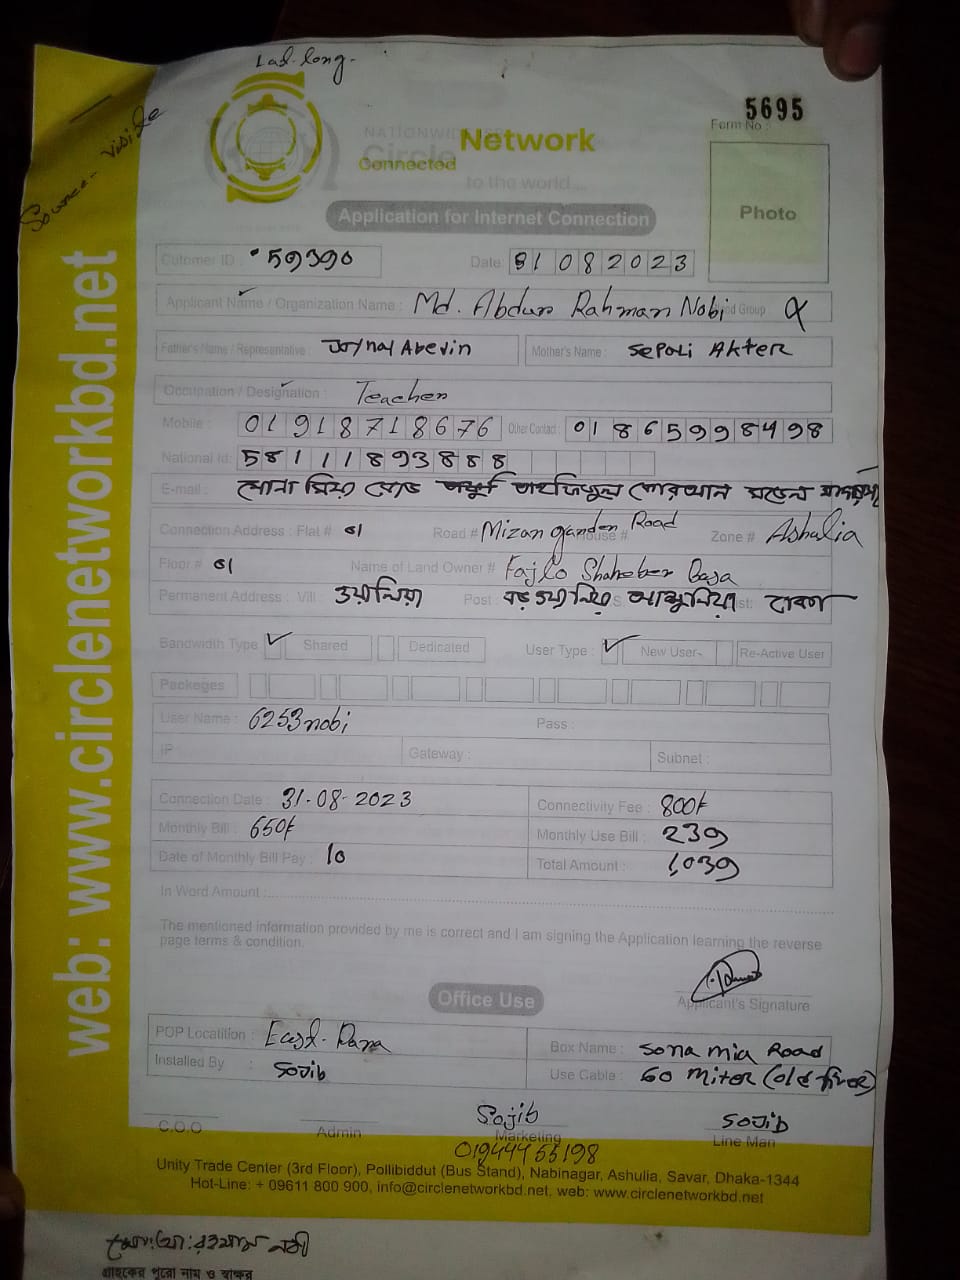 Lad. Long.
5695
Form No :
Source - visite
NATIONWIDE
Circle Network
Connected to the world...
Application for Internet Connection
Photo
Cutomer ID : 59390
Date : 31 08 2023
Applicant Name / Organization Name : Md. Abdur Rahman Nobi Blood Group
Father's Name / Representative : Joynal Abevin Mother's Name : Sepali Akter
Occupation / Designation : Teacher
Mobile : 01918718676 Other Contact : 01865998498
National Id: 5811189 3888
E-mail : সোনা মিয়া রোড
Connection Address : Flat # 01 Road # Mizan garden Road House # Zone # Ashulia
Floor # 01 Name of Land Owner # Fajlo Shaheber Basa
Permanent Address : Vill : Post : আশুলিয়া Dist: ঢাকা
Bandwidth Type ✓ Shared Dedicated User Type : ✓ New User Re-Active User
Packeges
User Name : 6253nobi Pass :
IP Gateway : Subnet :
Connection Date : 31-08-2023 Connectivity Fee : 800/-
Monthly Bill : 650/- Monthly Use Bill : 239
Date of Monthly Bill Pay : 10 Total Amount : 1,039
In Word Amount :
The mentioned information provided by me is correct and I am signing the Application learning the reverse
page terms & condition.
Applicant's Signature
Office Use
POP Locatition : East-Para Box Name : Sona mia Road
Installed By : Sojib Use Cable : 60 Miter (old fiver)
Sojib Sojib
C.O.O Admin Marketing Line Man
01944455198
Unity Trade Center (3rd Floor), Pollibiddut (Bus Stand), Nabinagar, Ashulia, Savar, Dhaka-1344
Hot-Line: + 09611 800 900, info@circlenetworkbd.net, web: www.circlenetworkbd.net
web: www.circlenetworkbd.net
মো: আ: রহমান নবী
গ্রাহকের পুরো নাম ও স্বাক্ষর